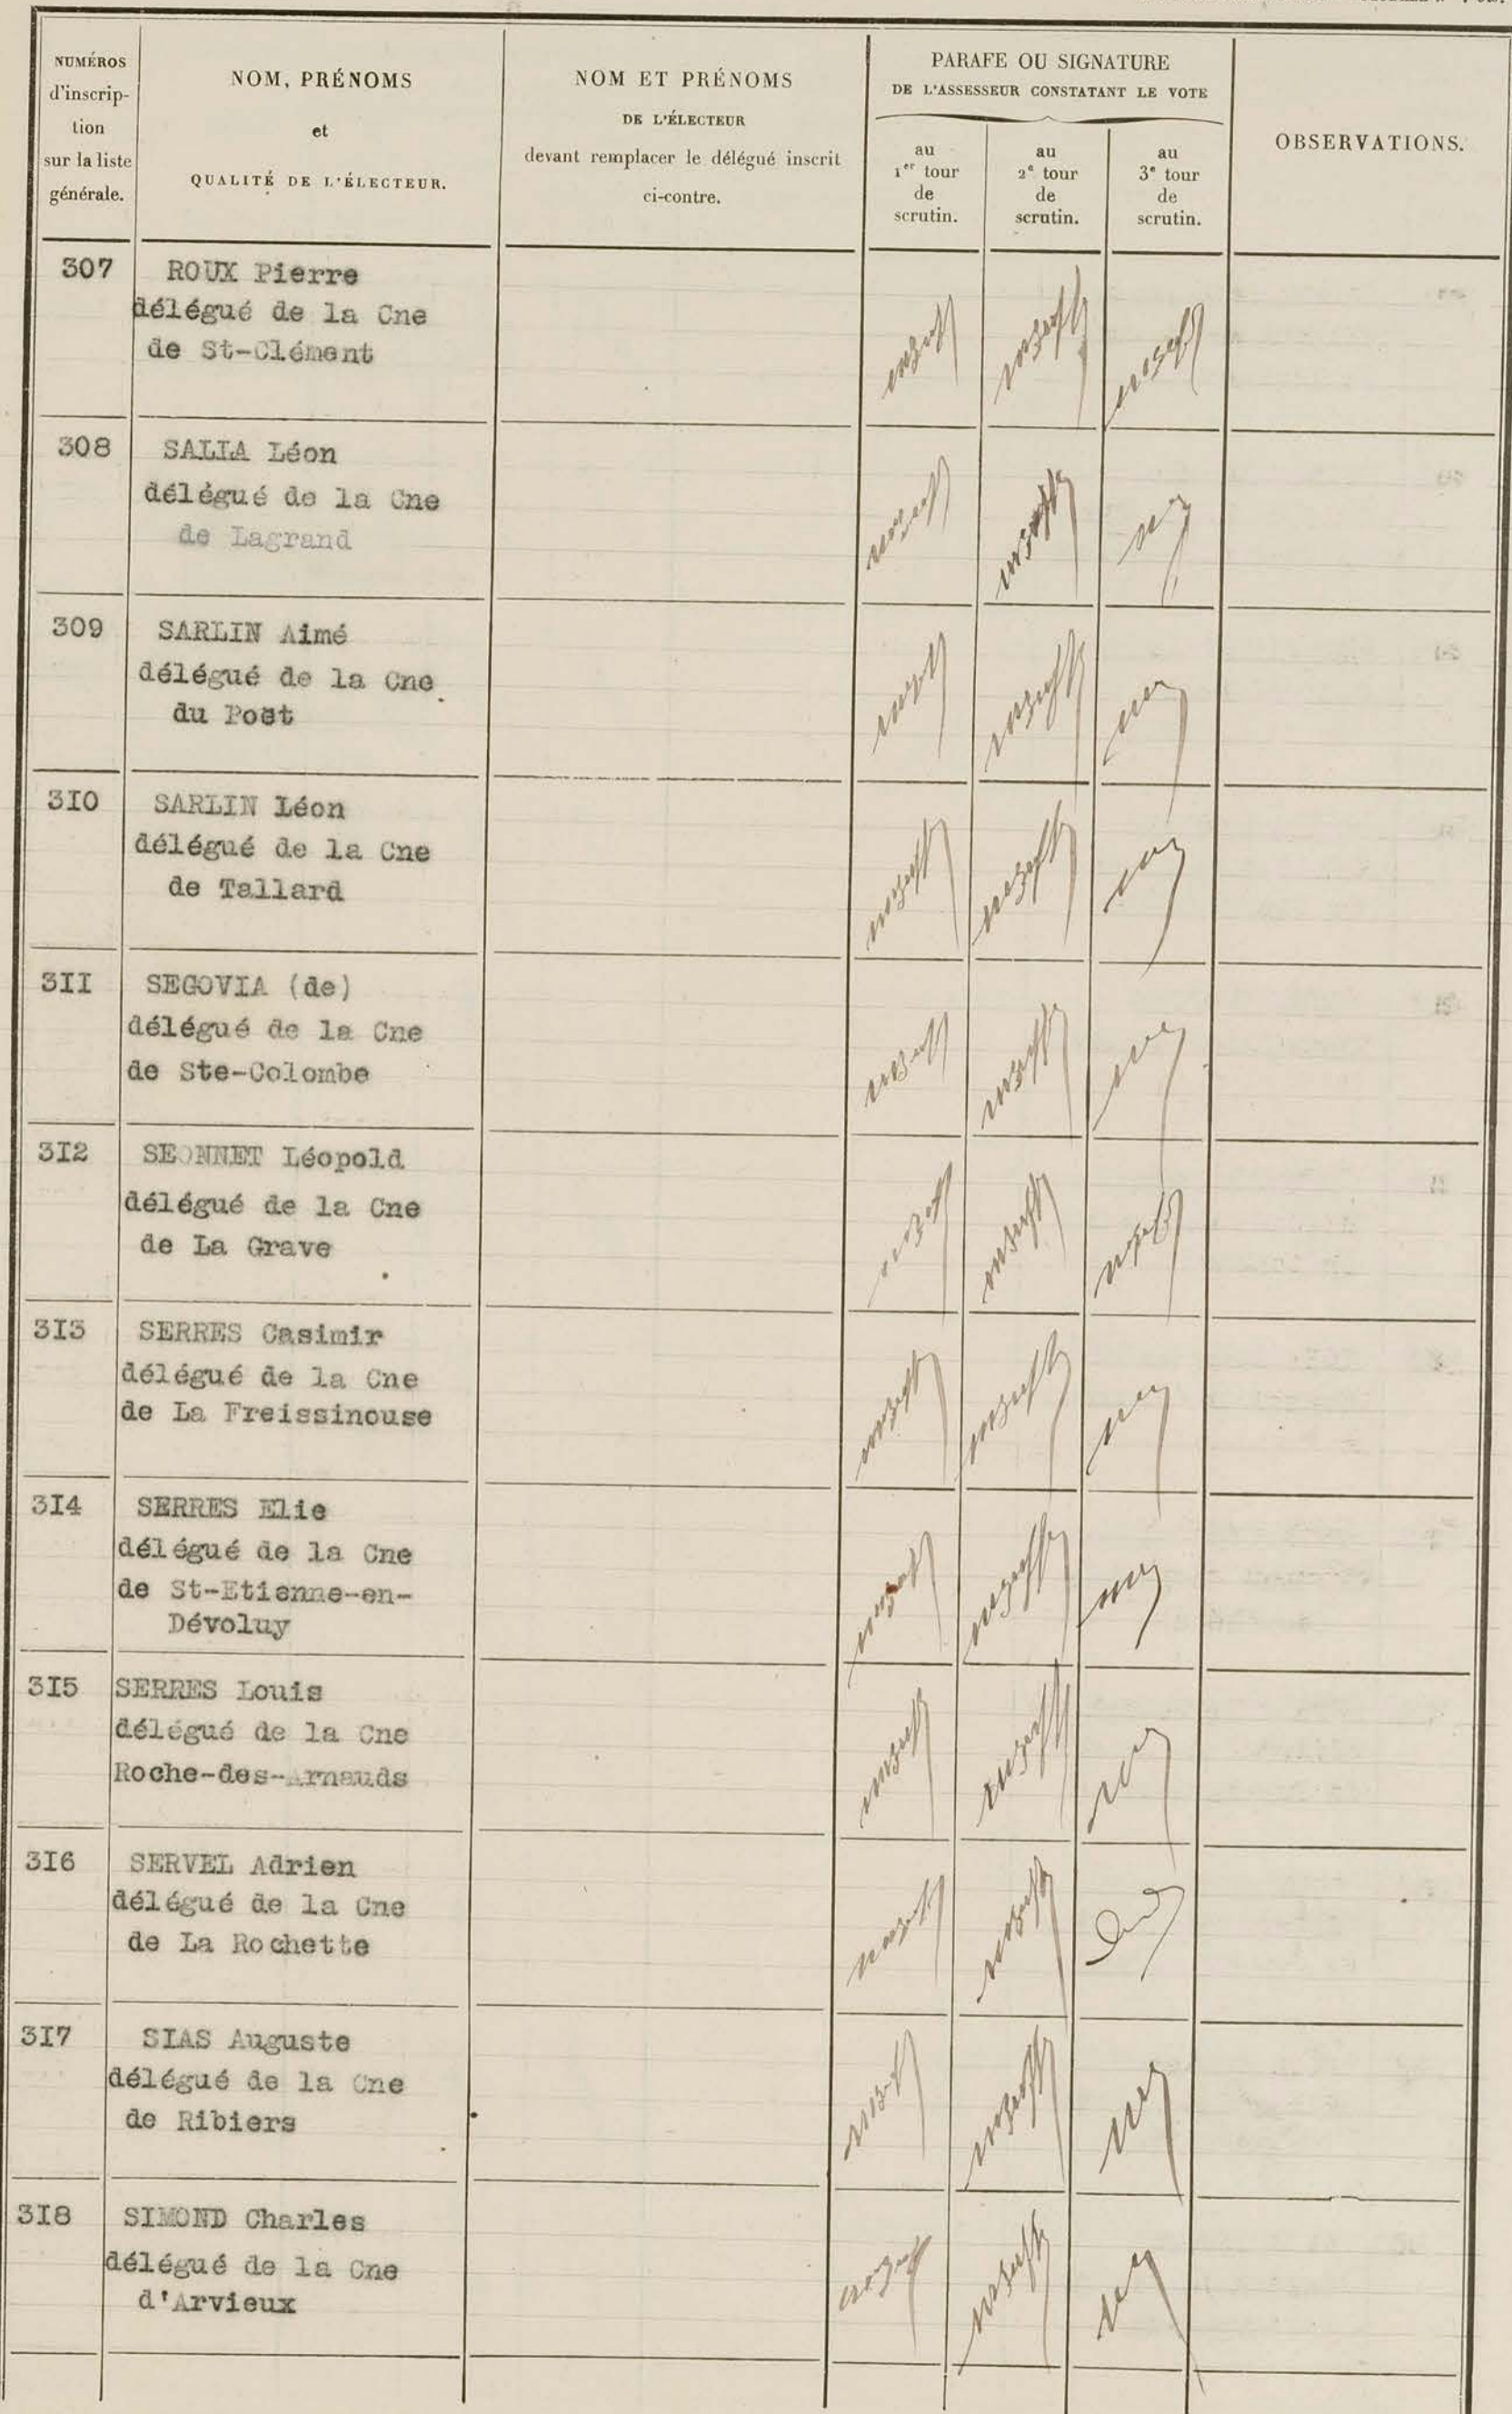 NUMÉROS
d'inscrip-
tion
sur la liste
générale.
NOM, PRÉNOMS
et
QUALITÉ DE L'ÉLECTEUR.
NOM ET PRÉNOMS
DE L'ÉLECTEUR
devant remplacer le délégué inscrit
ci-contre.
PARAFE OU SIGNATURE
DE L'ASSESSEUR CONSTATANT LE VOTE
au
1er tour
de
scrutin.
au
2e tour
de
scrutin.
au
3e tour
de
scrutin.
OBSERVATIONS.
307 ROUX Pierre
délégué de la Cne
de St-Clément
308 SALLA Léon
délégué de la Cne
de Lagrand
309 SARLIN Aimé
délégué de la Cne
du Poët
3I0 SARLIN Léon
délégué de la Cne
de Tallard
3II SEGOVIA (de)
délégué de la Cne
de Ste-Colombe
3I2 SEONNET Léopold
délégué de la Cne
de La Grave
3I3 SERRES Casimir
délégué de la Cne
de La Freissinouse
3I4 SERRES Elie
délégué de la Cne
de St-Etienne-en-
Dévoluy
3I5 SERRES Louis
délégué de la Cne
Roche-des-Arnauds
3I6 SERVEL Adrien
délégué de la Cne
de La Rochette
3I7 SIAS Auguste
délégué de la Cne
de Ribiers
3I8 SIMOND Charles
délégué de la Cne
d'Arvieux